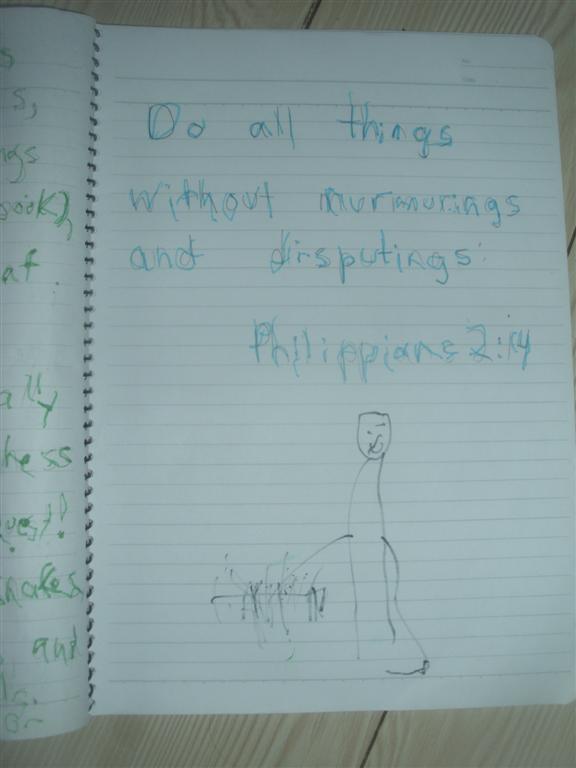 s
s,
ngs
book),
at.
ally
hess
quest!
snakes
and
Do all things
without murmurings
and dirsputings:
Philippians 2:14